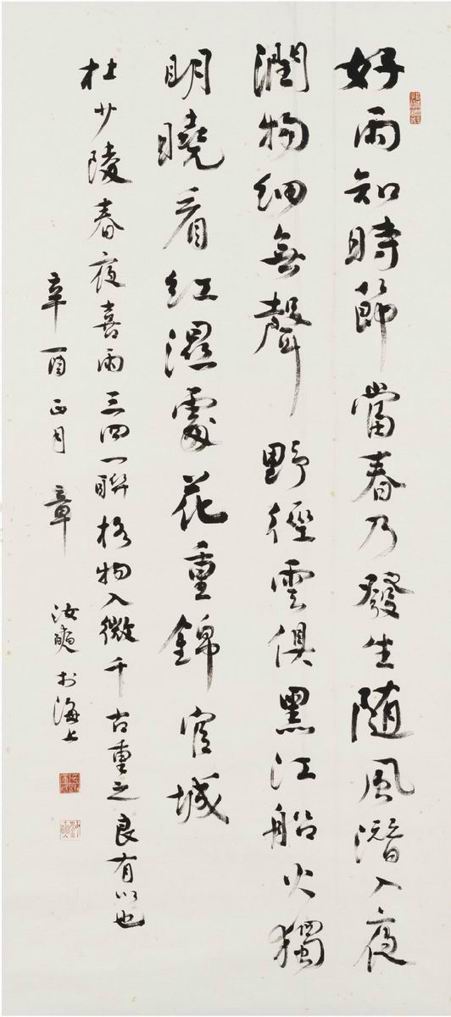 好雨知時節當春乃發生随風潛入夜
潤物細無聲野徑雲俱黑江船火獨
明曉看紅濕處花重錦官城
杜少陵春夜喜雨三四一聯格物入微千古重之良有以也
辛酉正月章汝奭於海上